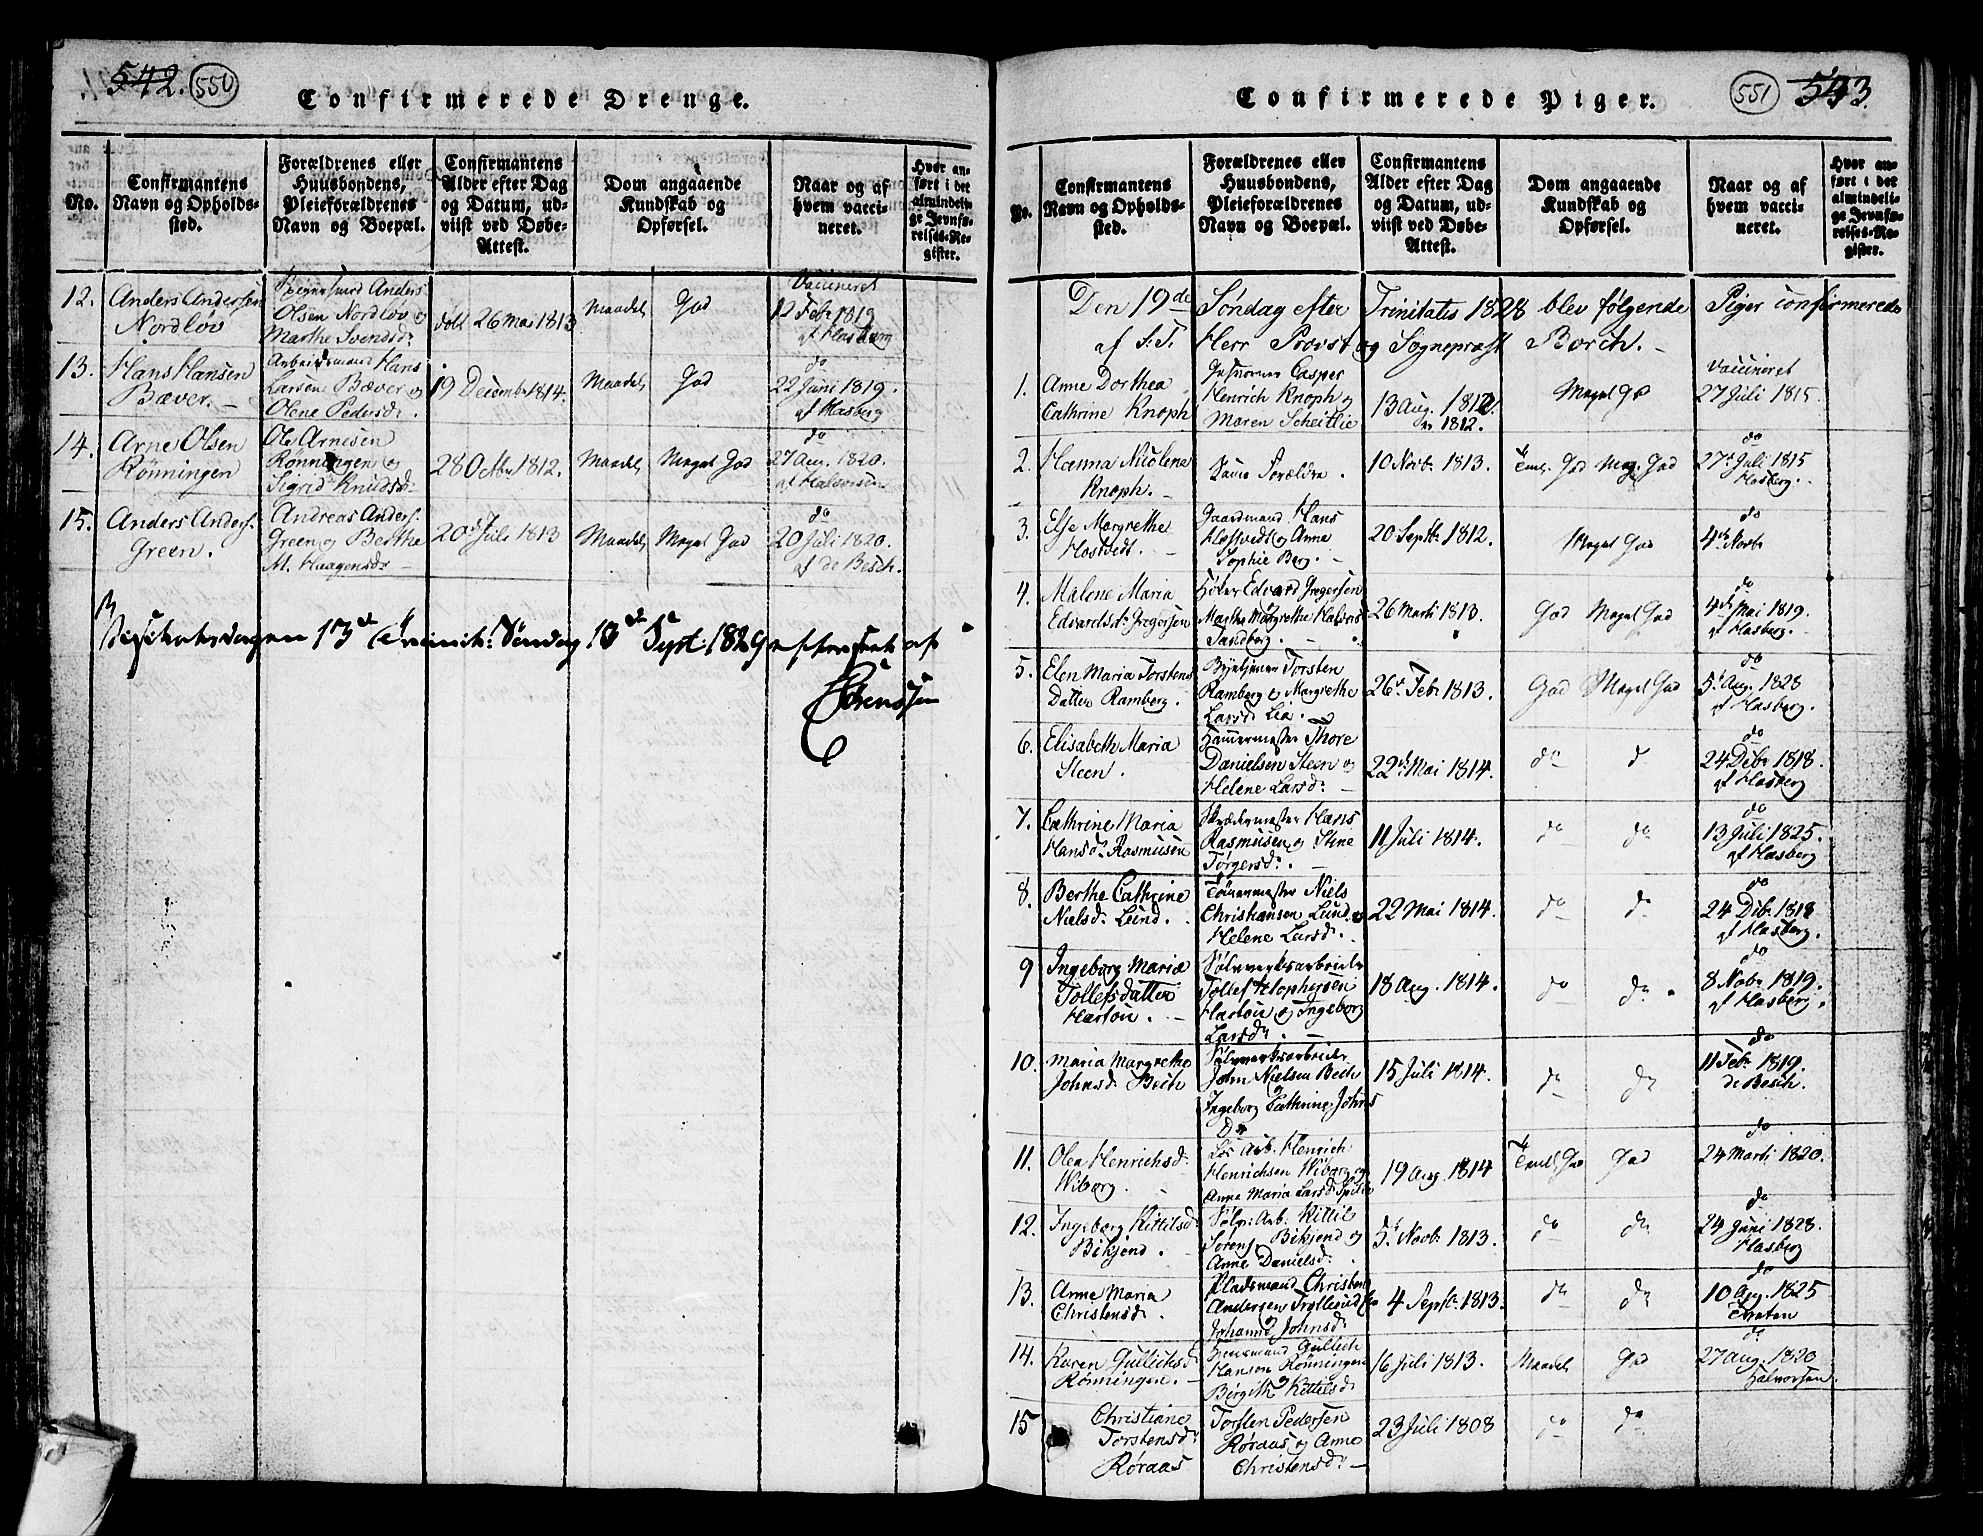 542. 550
Confirmerede Drenge.
No.
Confirmantens Navn og Opholds-sted.
Forældrenes eller Huusbondens, Pleieforældrenes Navn og Boepæl.
Confirmantens Alder efter Dag og Datum, ud-viist ved Døbe-Attest.
Dom angaaende Kundskab og Opførsel.
Naar og af hvem vacci-neret.
Hvor an-ført i det almindeli-ge Jevnfø-relses-Re-gister.
12.
Anders Andersen
Nordløv
Anders
Olsen Nordlöv og
Marthe Svendsd:
26 Mai 1813
Maadel.
God
Vaccineret
12 Febr 1819
af Hasberg
13.
Hans Hansen
Bæver. –
Arbeidsmand Hans
Larsen Bæver og
Olene Pedersd:
19 December 1814.
Maadel.
God
do
22 Juni 1819.
af Hasberg
14.
Arne Olsen
Rönningen
Ole Arnesen
Rönningen og
Sigrid Knudsd:
28 Obr 1812.
Maadel.
Meget God
do
27 Aug. 1820.
af Halvorsen
15.
Anders Anders.
Green.
Andreas Anders.
Green og Berthe
M. Haagensd: –
20d Juli 1813
Maadel.
Meget God
do
20 Juli 1820.
af de Besch.
Visitatsdagen 13de Trinit: Søndag 13de Sept: 1829 efterseet af
Sörenssen
551 543.
Confirmerede Piger.
No.
Confirmantens Navn og Opholds-sted.
Forældrenes eller Huusbondens, Pleieforældrenes Navn og Boepæl.
Confirmantens Alder efter Dag og Datum, ud-viist ved Døbe-Attest.
Dom angaaende Kundskab og Opførsel.
Naar og af hvem vacci-neret.
Hvor an-ført i det almindeli-ge Jevnfø-relses-Re-gister.
Den 19de Søndag efter Trinitatis 1828 blev følgende Piger confirmerede
af S.T. Herr Provst og Sognepræst Borch. –
1.
Anne Dorthea
Cathrine Knoph
Casper
Henrich Knoph og
Maren Scheitlie
13 Aug. 1812.
1812.
Meget God
Vaccineret
27 Juli 1815
2.
Hanna Nicolena
Knoph. –
Samme Forældre.
10 Novb. 1813.
God Meg. God
do
27d Juli 1815
Hasberg.
3.
Else Margrethe
Hostvedt.
Gaardmand Hans
Hostvedt og Anne
Sophie Berg.
20 Septb. 1812.
Meget God
do
4de Novb
4.
Malene Maria
Edvardsd: Gregersen
Edvard Gregersen
Marthe Margrethe Halvorsd
Sandberg.
26 Marti 1813.
God Meget God
do
4de Mai 1819.
af Hasberg.
5.
Elen Maria Torstens
Datter Ramberg.
Torsten
Ramberg og Margrethe
Larsd: Lia.
26d Febr 1813.
God Meget God
do
5d Aug. 1828
af Hasberg.
6.
Elisabeth Maria
Steen.
Hammermester Thore
Danielsen Steen og
Helene Larsd: –
22de Mai 1814.
do
d
do
24 Debr 1818.
af Hasberg
7.
Cathrine Maria
Hansd: Rasmusen
Skrædermester Hans
Rasmusen og Stine
Torgersd:
11 Juli 1814.
do
do
do
13 Juli 1825.
af Hasberg
8.
Berthe Cathrine
Nielsd: Lund.
Tömmermester Niels
Christiansen Lund og
Helene Larsd:
22 Mai 1814.
do
do
do
24 Dbr 1818
af Hasberg.
9
Ingeborg Maria
Tollefsdatter
Hartou.
Sølvverksarbeider
Tollef
Hartou og Ingeborg
Larsd: –
18 Aug. 1814.
do
do
do
8 Nobr 1819.
af Hasberg.
10.
Maria Margrethe
Johnsd: Bech
Sølvverksarbeider
John Nielsen Bech
og
Ingeborg Cathrine Johns
Dr
15 Juli 1814.
do
do
do
11 Febr 1819.
de Besch.
11.
Olea Henrichsd:
Wiborg.
Løs Arb. Henrich
Henrichsen Wiborg og
Anne Maria Larsd:
19 Aug. 1814
God
God
do
24 Marti 1820.
12.
Ingeborg Kittilsd:
Bikjend.
Sølv: Arb. Kittil
Sörens. Bikjend og
Anne Danielsd:
Novb. 1813.
do
do
do
24 Juni 1828.
Hasberg
13.
Anne Maria
Christensd:
Pladsmand Christen
Andersen
og
Johanne Johnsd:
4 Septb. 1813.
do
do
do
10 Aug. 1825
14.
Karen Gullichsd:
Rönningen. –
Gullich
Hansen Rönningen
og
Birgith Kittilsd:
16 Juli 1813.
Maadel.
God
do
27 Aug. 1820
Halvorsen.
15
Christiane
Torstensd:
Röraas
Torsten Pedersen
Röraas og Anne
Christensd: –
23 Juli 1808
do
do